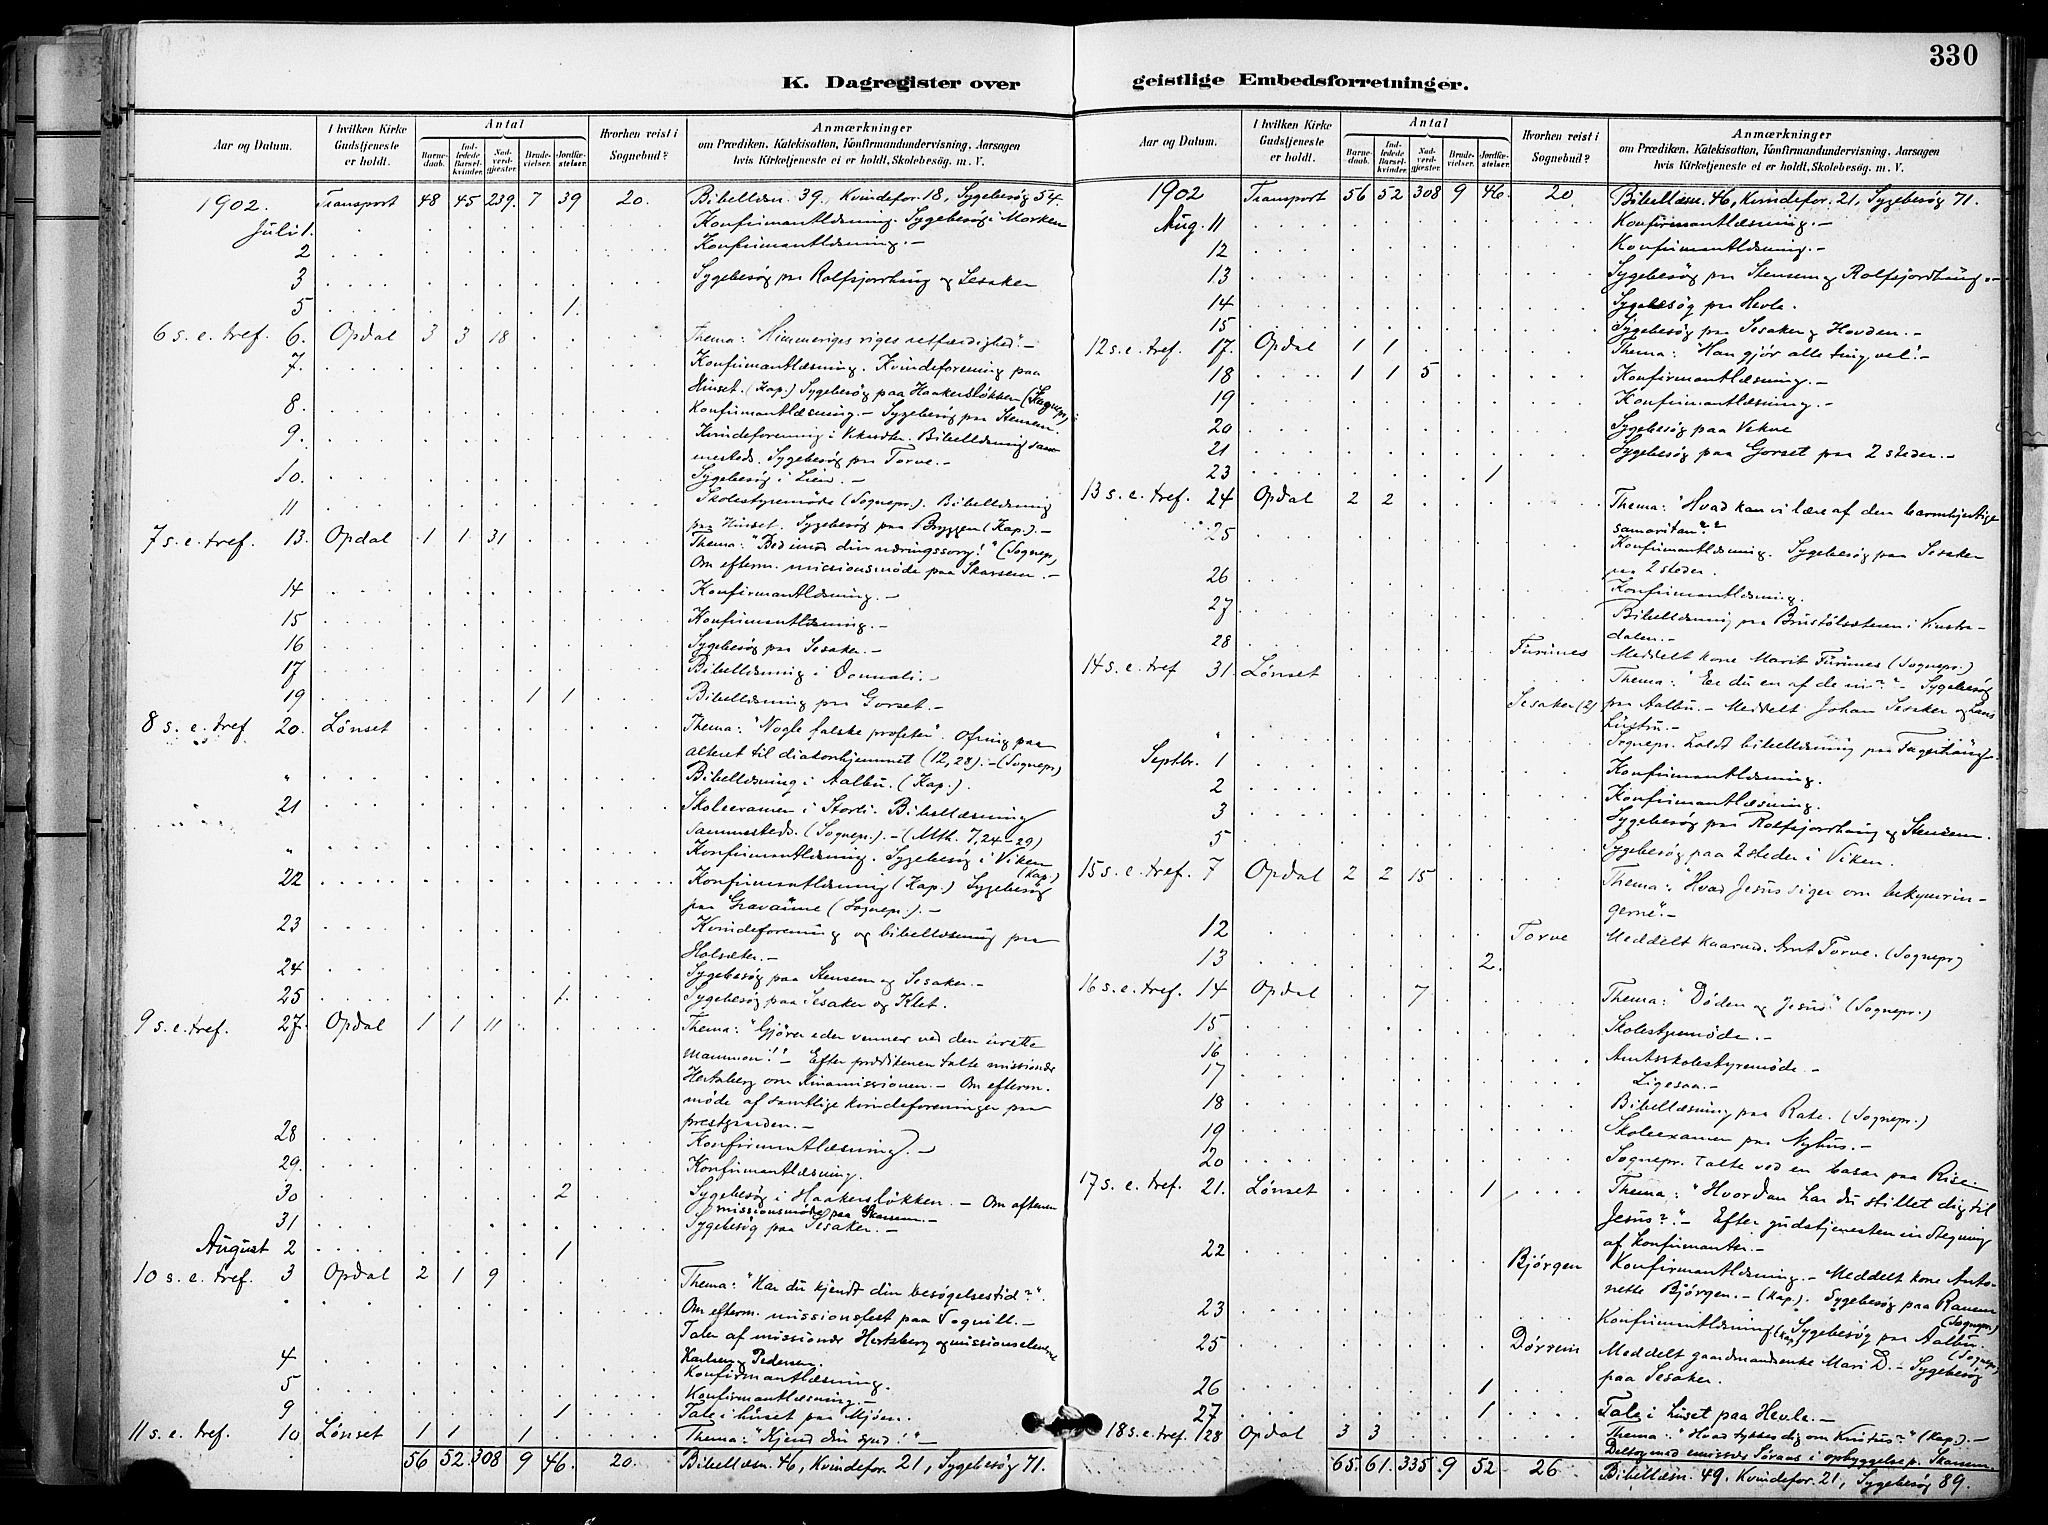 330
K. Dagregister over
geistlige Embedsforretninger.
Aar og Datum.
I hvilken Kirke Gudstjeneste er holdt.
Antal
Barnedaab.
Indledede Barselkvinder.
Nadverdgjester.
Brudevielser.
Jordfæstelser.
Hvorhen reist i Sognebud?
Anmærkninger
om Prædiken, Katekisation, Konfirmandundervisning, Aarsagen
hvis Kirketjeneste ei er holdt, Skolebesøg. m. V.
1902. Transport 48 45 239. 7 39 20. Bibellæsn. 39., Kvindefor. 18, Sygebesøg 54.
Juli 1. Konfirmantlæsning. Sygebesøg i Morken
2 Konfirmantlæsning.-
3 Sygebesøg paa Rolfsjordhaug og Sesaker
5 1.
6 s. e. tref. 6. Opdal 3 3 18 Thema: "Himmeriges riges retfærdighed".-
7. Konfirmantlæsning. Kvindeforening paa
Hinset. (Kap.) Sygebesøg paa Haakersløkken (Sognepr.)
8. Konfirmantlæsning.- Sygebesøg paa Stensem.
9. Kvindeforening i Vekselter. Bibellæsning sam-
mesteds. Sygebesøg paa Torve.-
10. Sygebesøg i Lien.-
11 Skolestyremøde (Sognepr.). Bibellæsning
paa Hinset. Sygebesøg paa Bryggen (Kap.)-
7 s. e. tref. 13. Opdal 1 1 31 Thema: "Bed imod din næringssorg!" (Sognepr.)
Om efterm. missionsmøde paa Skarsem.-
14 Konfirmantlæsning.-
15 Konfirmantlæsning.-
16 Sygebesøg paa Sesaker.-
17 Bibellæsning i Donnali.-
19 1 1 Bibellæsning paa Gorset.-
8 s. e. tref 20. Lønset Thema: "Nogle falske profeter". Ofring paa
alteret til diakonhjemmet (12,28).-(Sognepr)
" Bibellæsning i Aalbu. (Kap.)
21 Skoleexamen i Storli. Bibellæsning
sammesteds. (Sognepr.).-(Mth. 7, 24-29)
" Konfirmantlæsning. Sygebesøg i Viken (Kap.)
22 Konfirmantlæsning (Kap.) Sygebesøg
paa Gravaune (Sognepr.).-
23 Kvindeforening og bibellæsning paa
Holsæter.-
24 Sygebesøg paa Stensem og Sesaker.-
25 1. Sygebesøg paa Sesaker og Klet.-
9 s. e. tref. 27. Opdal 1 1 11 Thema: "Gjører eder venner ved den urette
mammon!"- Efter prædikenen talte missionær
Hertzberg om Kinamissionen.- Om efterm.
møde af samtlige kvindeforeninger paa
prestgaarden.-
28 Konfirmantlæsning.-
29. Konfirmantlæsning.
30 2 Sygebesøg i Haakersløkken.- Om aftenen
missionsmøde paa Skarsem.-
31 Sygebesøg paa Sesaker.-
August 2 1
10 s. e. tref. 3 Opdal 2 1 9 Thema: "Har du kjendt din besøgelsestid?".
Om efterm. missionsfest paa Vognill.-
Taler af missionær Hertzberg og missionselevene
Karlberg Pedersen.
4 Konfirmantlæsning.
5 Konfirmantlæsning.-
9 1 Tale i huset paa Mjøen.
11 s. e. tref. 10 Lønset 1 1 1 Thema: "Kjend din gud!"-
56 52. 308 9 46. 20. Bibellæsn. 46, Kvindefor. 21, Sygebesøg 71.
Aar og Datum.
I hvilken Kirke Gudstjeneste er holdt.
Antal
Barnedaab.
Indledede Barselkvinder.
Nadverdgjester.
Brudevielser.
Jordfæstelser.
Hvorhen reist i Sognebud?
Anmærkninger
om Prædiken, Katekisation, Konfirmandundervisning, Aarsagen
hvis Kirketjeneste ei er holdt, Skolebesøg. m. V.
1902 Transport 56 52 308 9 46. 20 Bibellæsn. 46, Kvindefor. 21, Sygebesøg 71.
Aug. 11 Konfirmantlæsning.-
12 Konfirmantlæsning.-
13 Sygebesøg paa Stensem og Rolfsjordhaug.-
14 Sygebesøg paa Hevle.
15 Sygebesøg paa Sesaker og Hovden.-
12 s. e. tref. 17. Opdal 1 1 Thema: "Han gjør alle ting vel".-
18 1 1 5 Konfirmantlæsning.-
19 Konfirmantlæsning.-
20 Sygebesøg paa Vekve
21 Sygebesøg paa Gorset paa 2 steder.-
23 1
13 s. e. tref. 24 Opdal 2 2 Thema: "Hvad kan vi lære af den barmhjertige
samaritan"?
25 Konfirmantlæsning. Sygebesøg paa Sesaker
paa 2 steder.
26 Konfirmantlæsning.
27 Bibellæsning paa Brustølsæteren i Vinstra-
dalen.-
28 Furunes Meddelt kone Marit Furunes (Sognepr.)
14 s. e. tref 31. Lønset Thema: "Er du en af de ni?"- Sygebesøg
Sesaker (2) paa Aalbu.- Meddelt Johan Sesaker og Lars
" Sognepr. holdt bibellæsning paa Fagerhaug
Septbr. 1 Konfirmantlæsning.
2 Konfirmantlæsning.
3 Sygebesøg paa Rolfsjordhaug og Stensem.
5 Sygebesøg paa 2 steder i Viken.
15 s. e. tref. 7 Opdal 2 2 15 Thema: "Hvad Jesus siger om bekymrin-
gerne".-
12 Torve Meddelt kaarmd. Arnt Torve. (Sognepr)
13 2.
16 s. e. tref. 14 Opdal 7 Thema: "Døden og Jesus." (Sognepr.)
15 Skolestyremøde.-
16 Amtsskolestyremøde.-
17 Ligesaa.-
18 Bibellæsning paa Rate. (Sognepr.)
19 Skoleexamen paa Nyhus.-
20 Sognepr. talte ved en basar paa Rise.-
17 s. e. tref. 21. Lønset 1 Thema: "Hvordan har du stillet dig til
Jesus?".- Efter gudstjenesten indtegning
af konfirmanter.-
22 Bjørgen Konfirmantlæsning.- Meddelt kone Anto-
nette Bjørgen.-(Kap.). Sygebesøg paa Ranem (Sognepr.)
23 Konfirmantlæsning (Kap.) Sygebesøg paa Aalbu (Sognepr.)
25 Dørrem Meddelt gaardmandsenke Mari D.- Sygebesøg
paa Sesaker.
26 1
27 1 Tale i huset paa Hevle.-
18 s. e. tref. 28 Opdal 3 3 Thema: "Hvad tykkes dig om Kristus?" (Kap.)-
65. 61. 335. 9 52 26 Bibellæsn. 49, Kvindefor. 21, Sygebesøg 89.